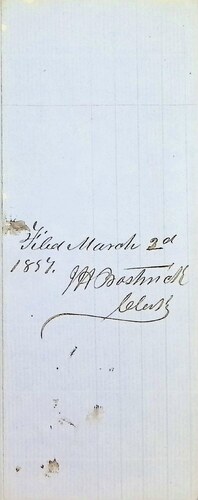 Filed March 2d
1857.
JH Bostwick
Clerk